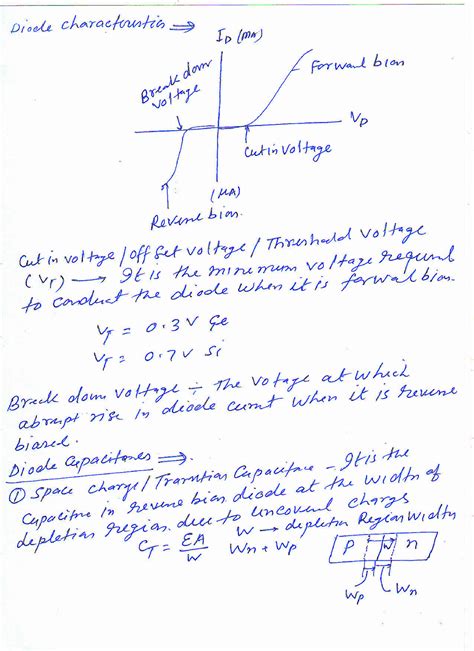 Diode characteristics ⇒
I_D (mA)
Forward bias
Break down
voltage
V_D
Cut in voltage
(μA)
Reverse bias
Cut in voltage / Off Set voltage / Threshold voltage
(V_r) → It is the minimum voltage required
to conduct the diode when it is forward bias.
V_r = 0.3 V Ge
V_r = 0.7 V Si
Break down voltage ÷ The votage at which
abrupt rise in diode currnt when it is reverse
biased.
Diode Capacitances ⇒
① Space charge / Transition Capacitance - It is the
Capacitnce in reverse bias diode at the width of
depletion region due to uncoverd chargs
C_T = EA/W W_n + W_p W → depletion Region Width
P W n
W_p W_n